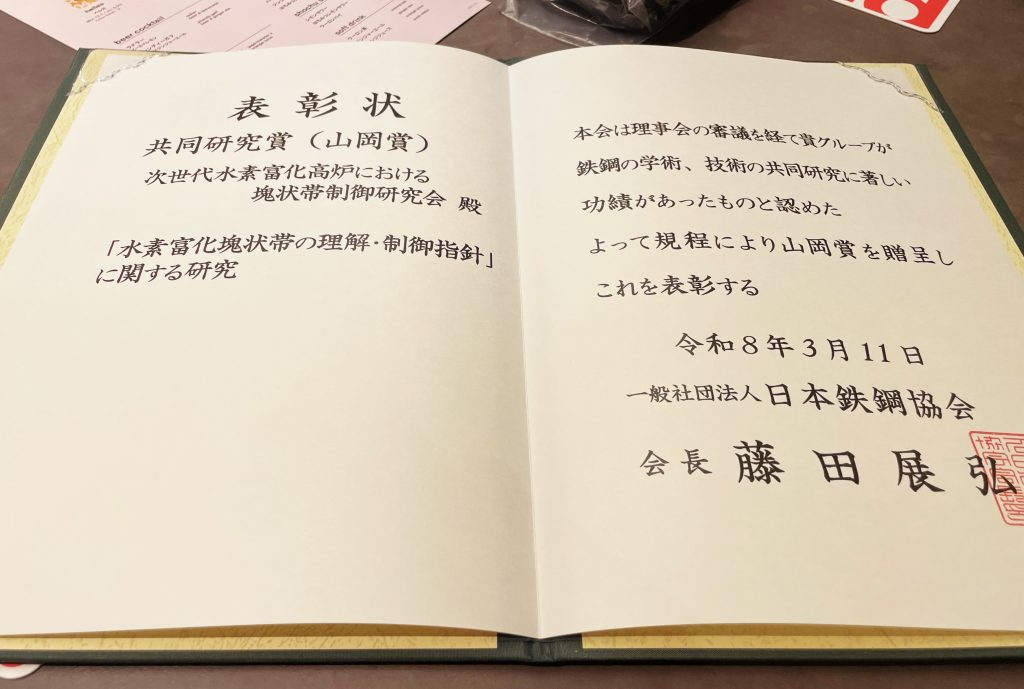 beer cocktail
soft drink
表彰状
共同研究賞（山岡賞）
次世代水素富化高炉における
塊状帯制御研究会 殿
「水素富化塊状帯の理解・制御指針」
に関する研究
本会は理事会の審議を経て貴グループが
鉄鋼の学術、技術の共同研究に著しい
功績があったものと認めた
よって規程により山岡賞を贈呈し
これを表彰する
令和8年3月11日
一般社団法人日本鉄鋼協会
会長 藤田展弘